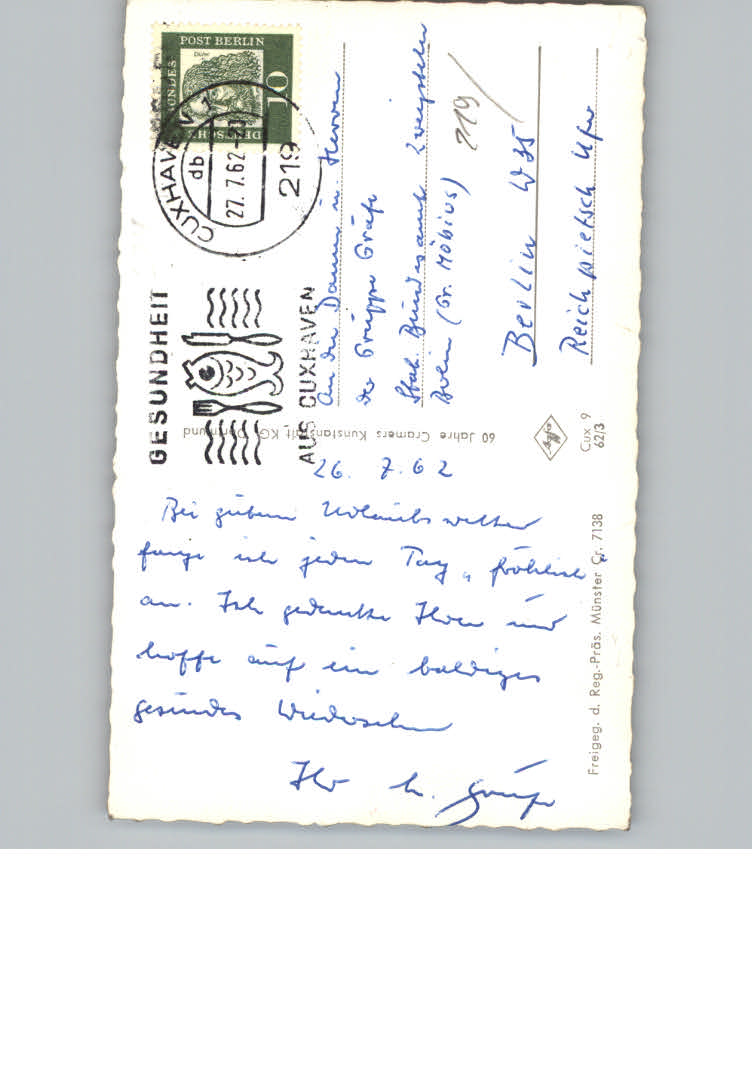 DEUTSCHE BUNDESPOST BERLIN
Dürer
10
CUXHAVEN 1
db
27.7.62
219
GESUNDHEIT
AUS CUXHAVEN
An die Damen u. Herren
der Gruppe Gräfe
Stat. Bundesamt Zweigstelle
Berlin (Gr. Möbius)
219/
Berlin W 35
Reichpietsch Ufer
60 Jahre Cramers Kunstanstalt KG, Dortmund
Agfa
Cux 9
62/3
Freigeg. d. Reg.-Präs. Münster Cr. 7138
26. 7. 62
Bei gutem Urlaubswetter
fange ich jeden Tag "fröhlich"
an. Ich gedenke Ihrer und
hoffe auf ein baldiges
gesundes Wiedersehen
Ihr h. Gräfe